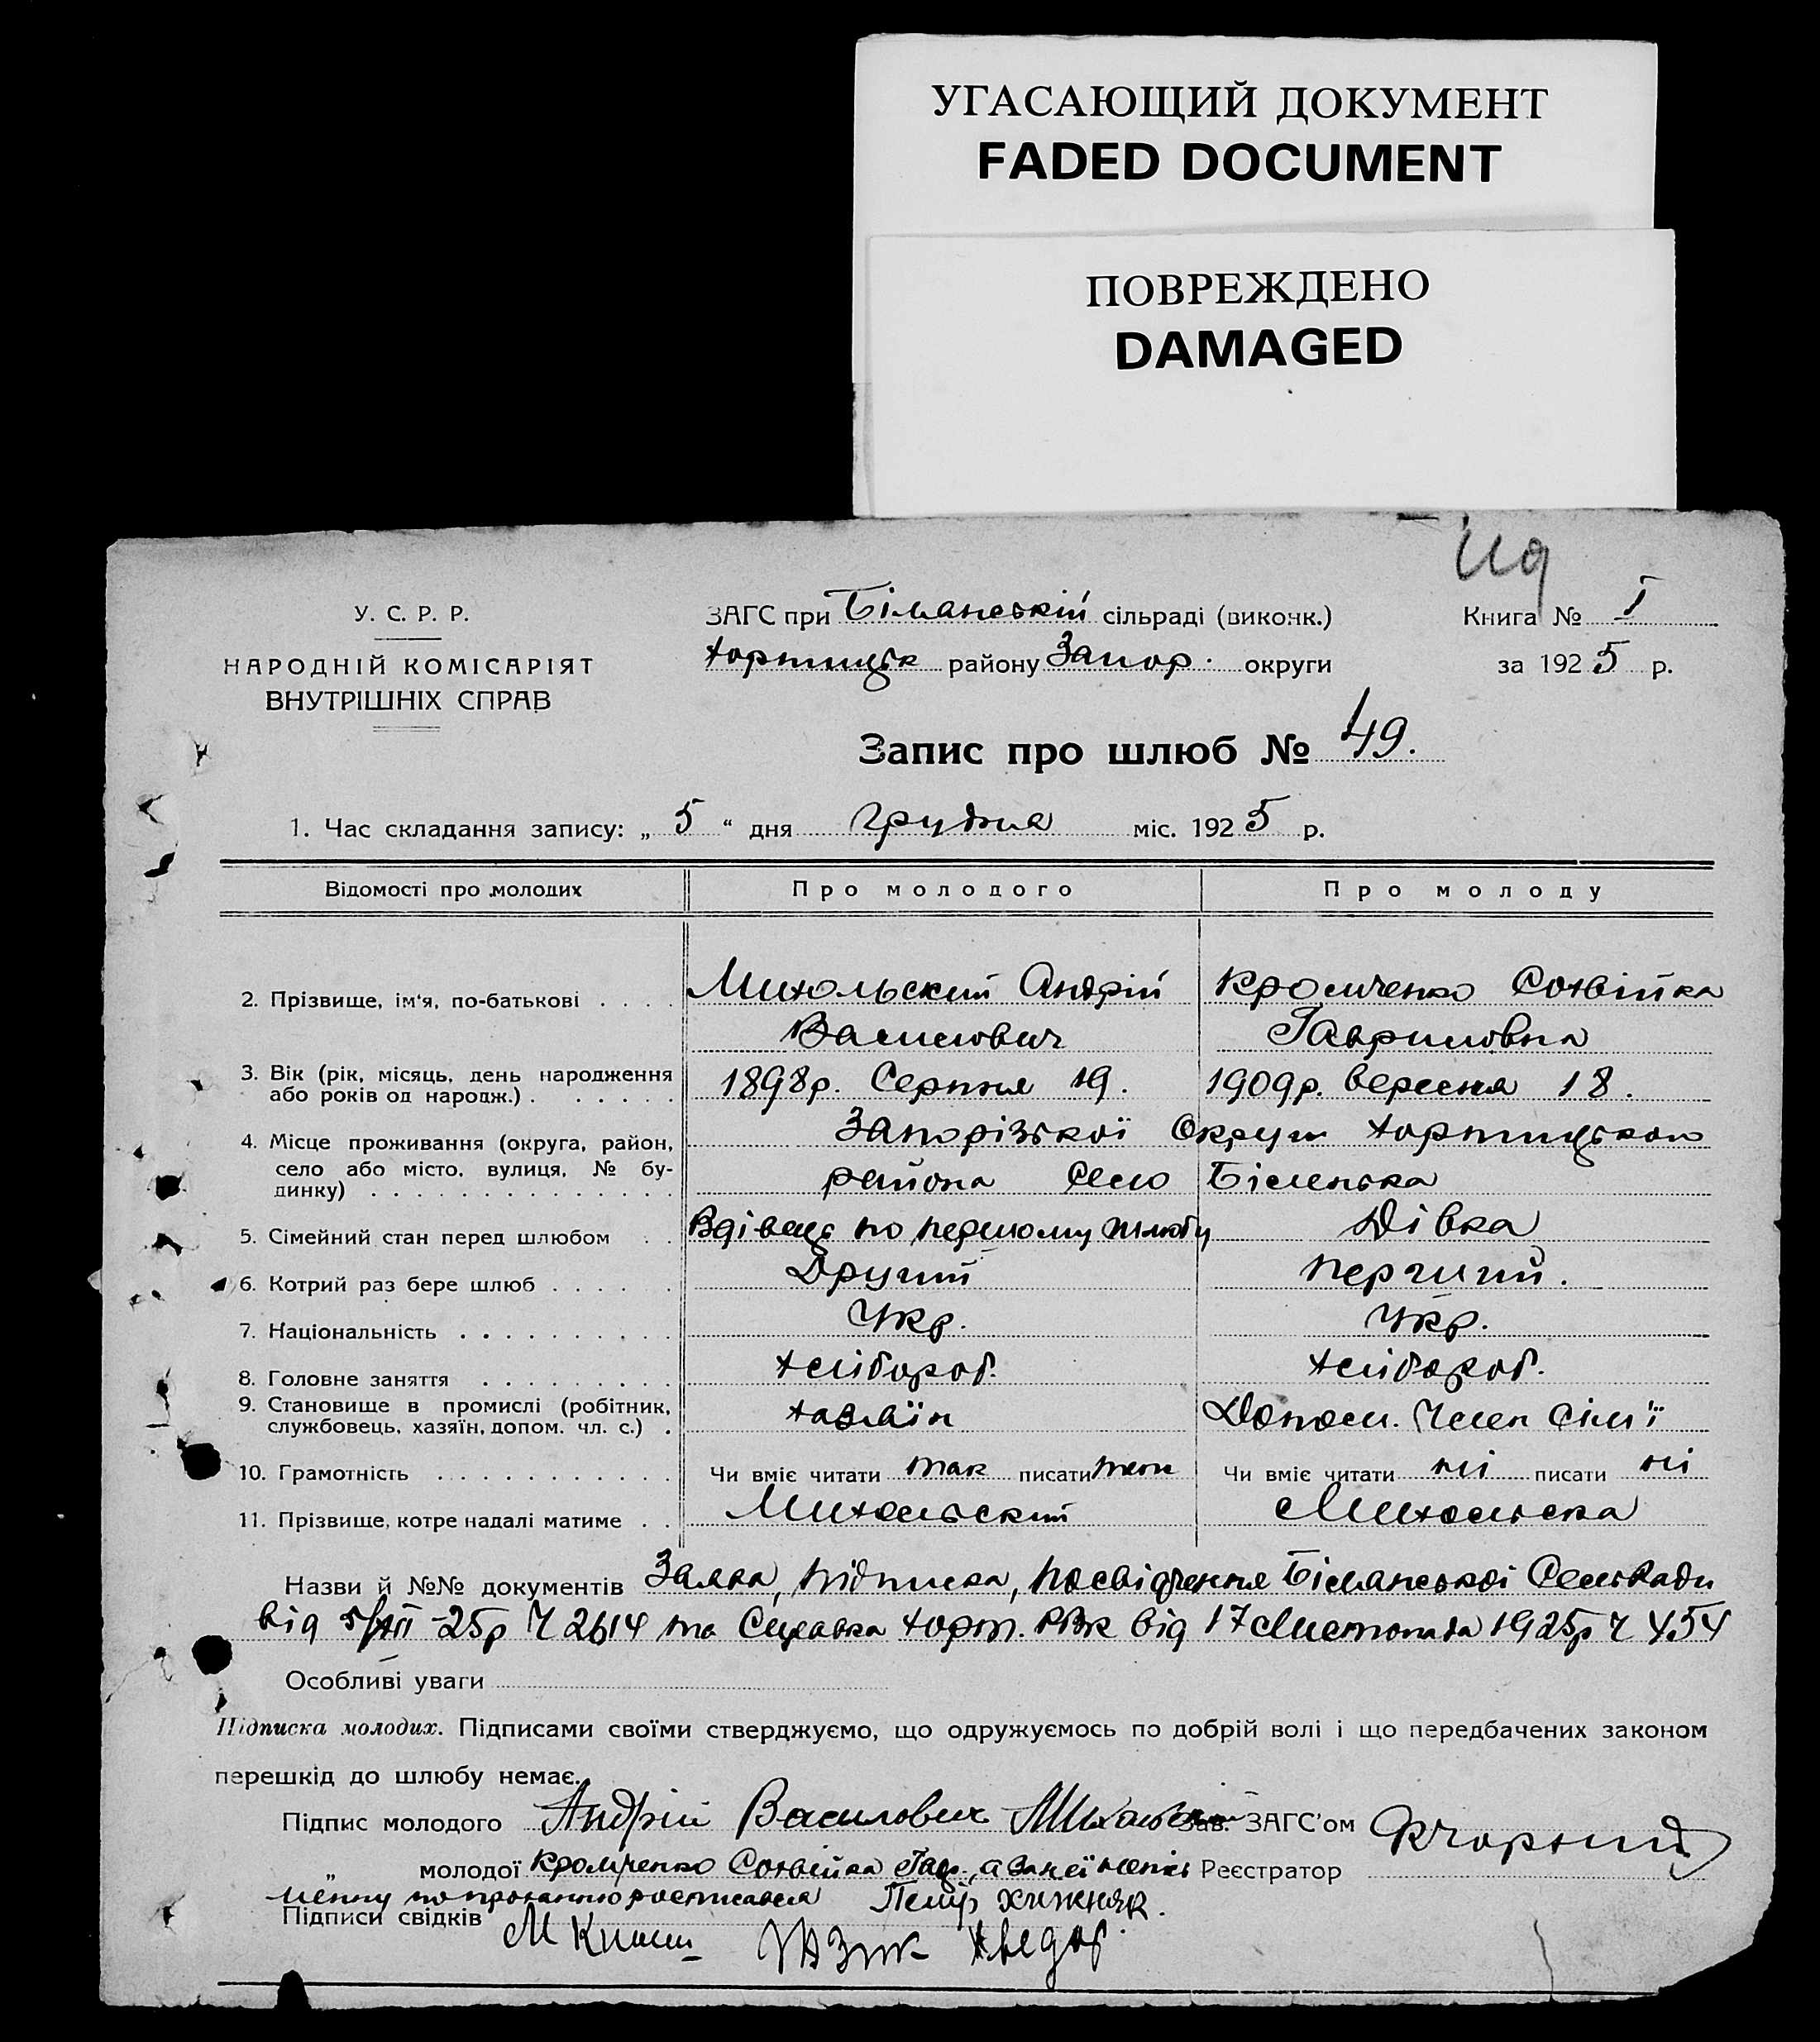 УГАСАЮЩИЙ ДОКУМЕНТ
FADED DOCUMENT
ПОВРЕЖДЕНО
DAMAGED
У. С. Р. Р.
НАРОДНІЙ КОМІСАРІЯТ
ВНУТРІШНІХ СПРАВ
ЗАГС при Біланській сільраді (виконк.)
Хортицьк району Запор. округи
Книга № I
за 1925 р.
Запис про шлюб № 49.
1. Час складання запису: „ 5 “ дня грудня міс. 1925 р.
Відомості про молодих Про молодого Про молоду
2. Прізвище, ім'я, по-батькові . . . . Михольский Андрій Кромченко Сохвійка
Василович Гавриловна
3. Вік (рік, місяць, день народження
або років од народж.) . . . . . . 1898р. Серпня 19. 1909р. вересня 18.
4. Місце проживання (округа, район, Запорізької Округи Хортицького
село або місто, вулиця, № бу-
динку) . . . . . . . . . . . . . . района Село Біленька
5. Сімейний стан перед шлюбом . . Вдівець по першому шлюбу Дівка
6. Котрий раз бере шлюб . . . . . Другий перший.
7. Національність . . . . . . . . . . Укр. Укр.
8. Головне заняття . . . . . . . . . Хлібороб. Хлібороб.
9. Становище в промислі (робітник,
службовець, хазяїн, допом. чл. с.) . хазяїн Допом. Член сім'ї
10. Грамотність . . . . . . . . . . . Чи вміє читати так писати так Чи вміє читати ні писати ні
11. Прізвище, котре надалі матиме . . Михольский Михольска
Назви й №№ документів Заява, підписка, посвідчення Біланської Сельради
від 5/XII-25р Ч 2614 та Справка Хорт. РВК від 17 Листопада 1925р Ч 454
Особливі уваги
Підписка молодих. Підписами своїми стверджуємо, що одружуємось по добрій волі і що передбачених законом
перешкід до шлюбу немає.
Підпис молодого Андрій Василович Зав. ЗАГС'ом
„ молодої Кромченко Сохвійка Гав., а за неї Реєстратор
по проханню росписався Петр Хижняк.
Підписи свідків М